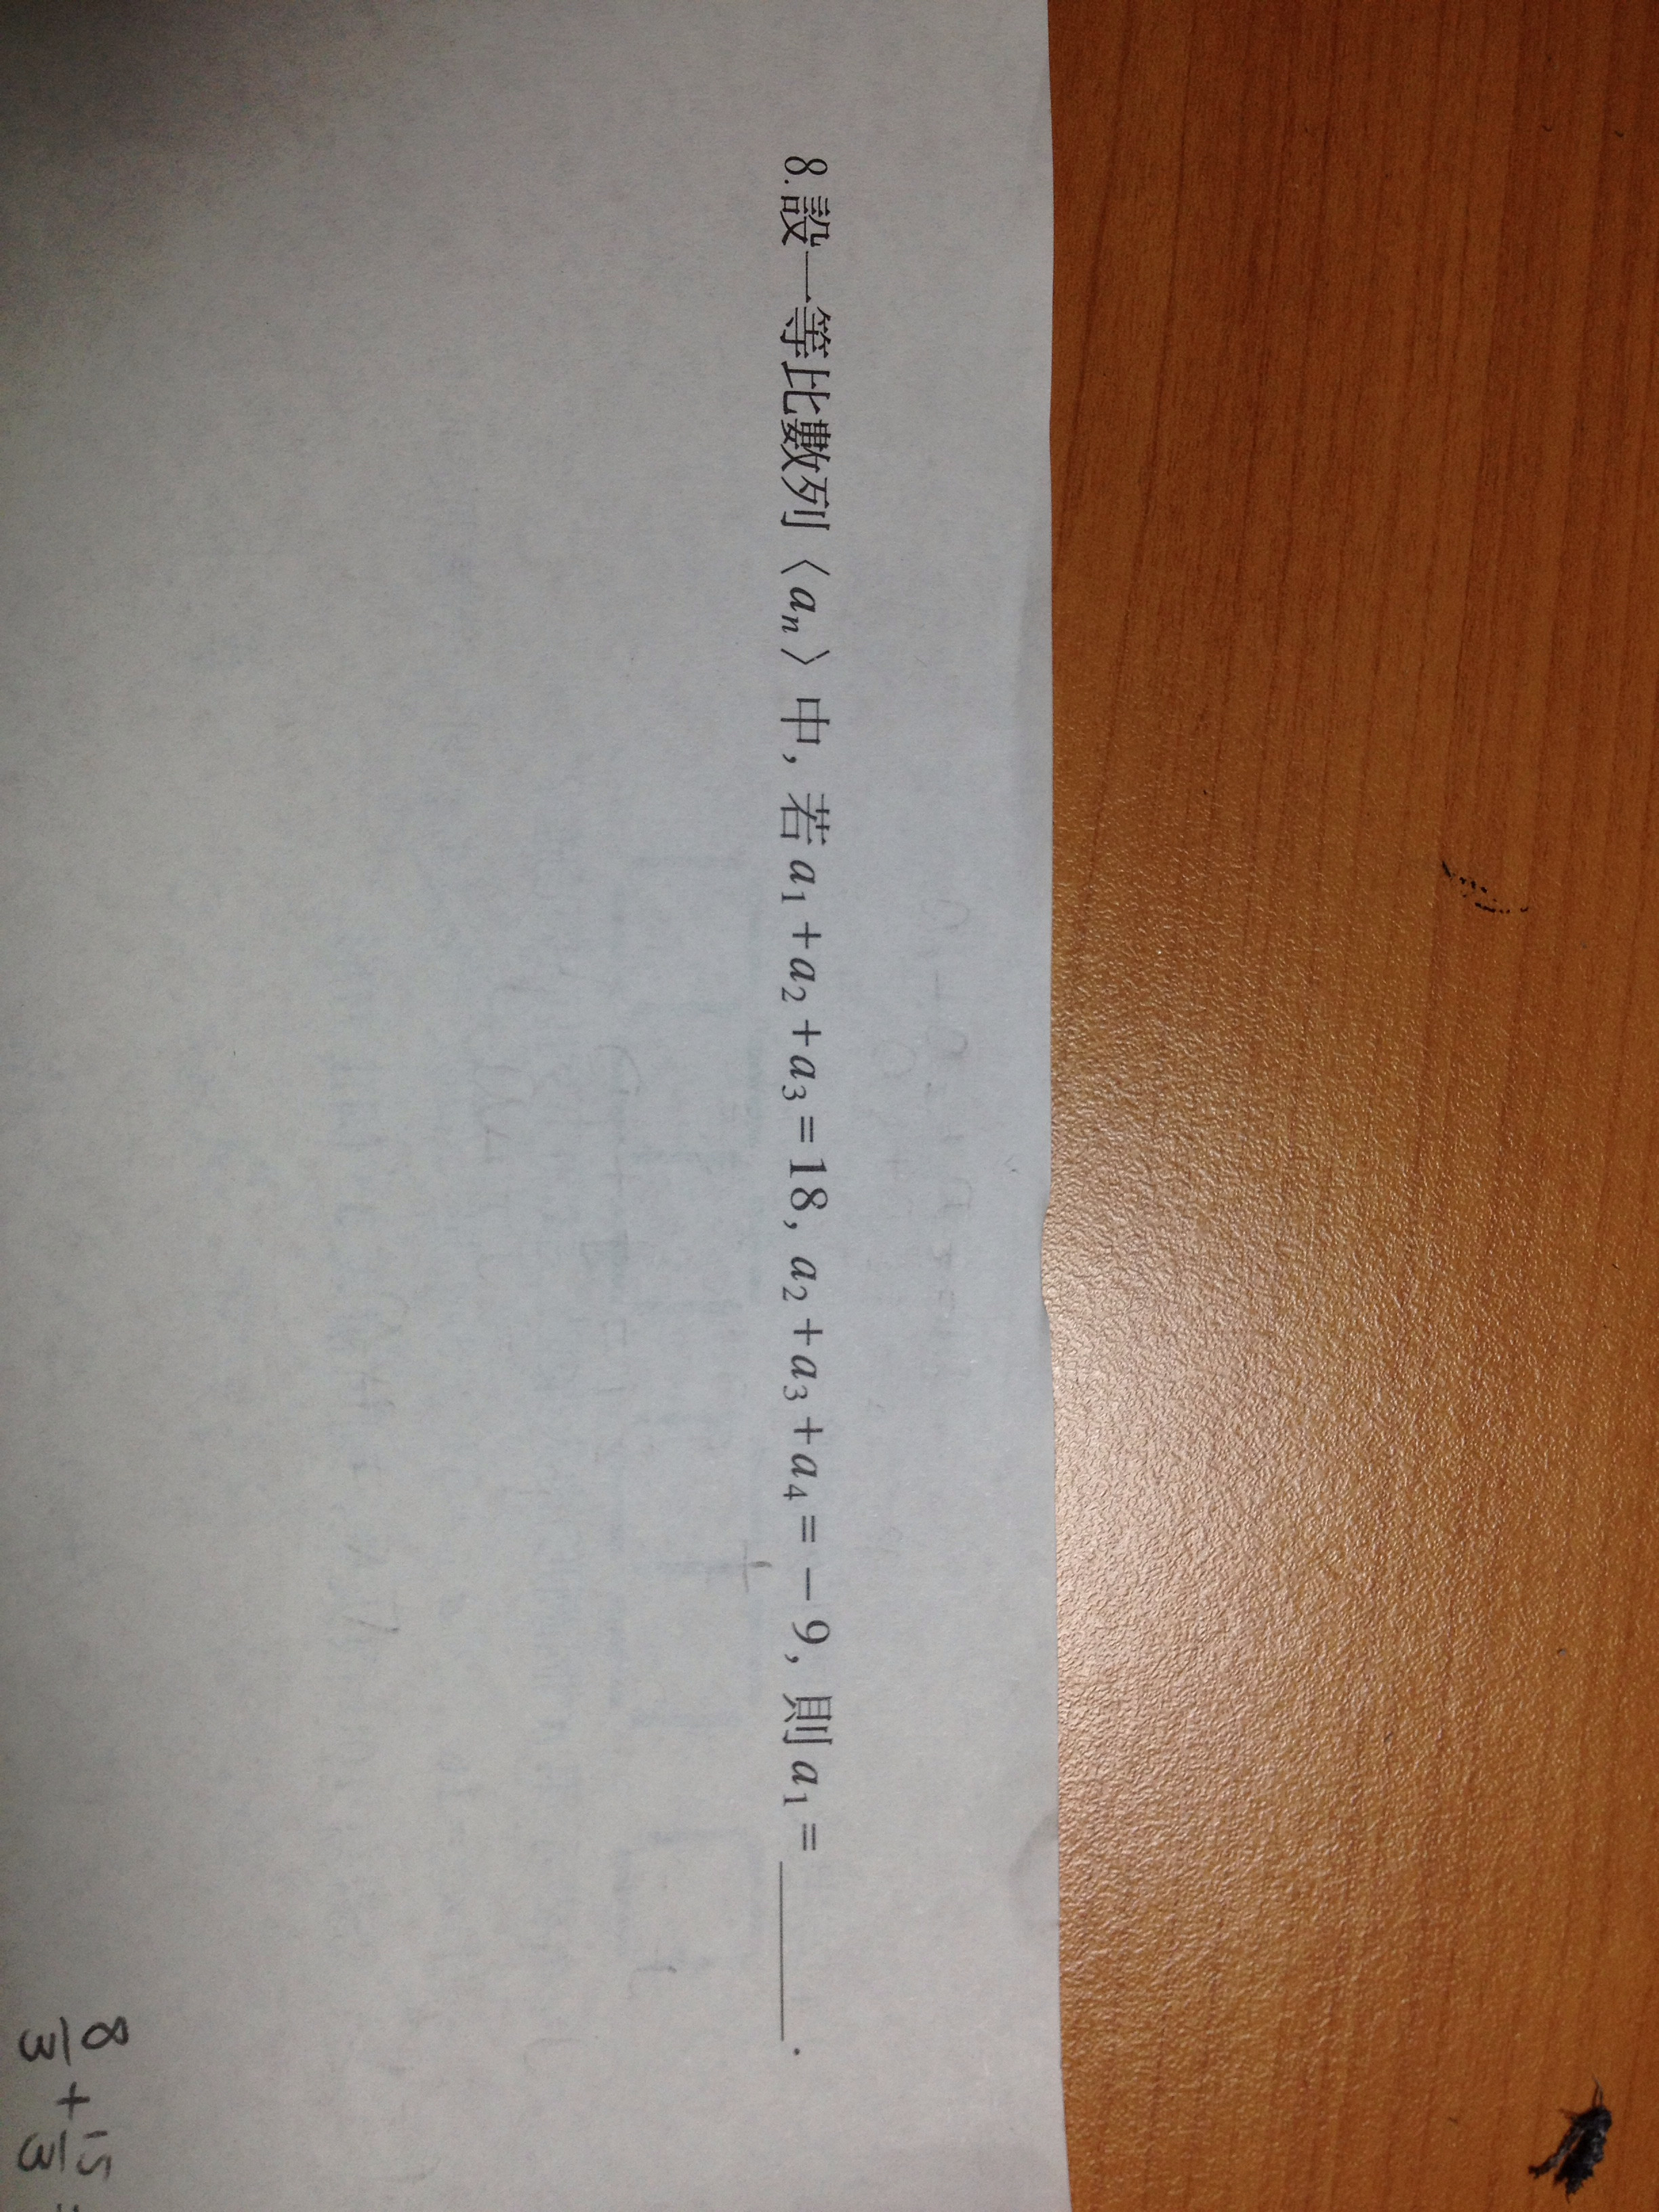 8.設一等比數列〈aₙ〉中, 若 a₁+a₂+a₃=18, a₂+a₃+a₄=−9, 則 a₁=______.
8/3 + 15/3 =